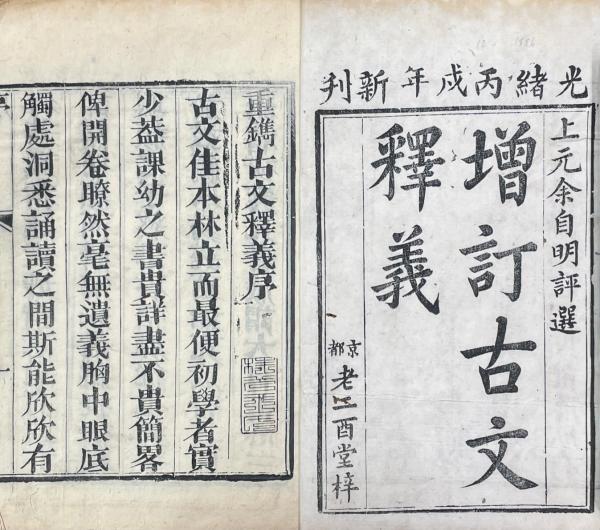 光緒丙戌年新刊
上元余自明評選
增訂古文
釋義
京都老二酉堂梓
重鐫古文釋義序
古文佳本林立而最便初學者實
少葢課幼之書貴詳盡不貴簡畧
俾開卷瞭然毫無遺義胸中眼底
觸處洞悉誦讀之間斯能欣欣有
序
一